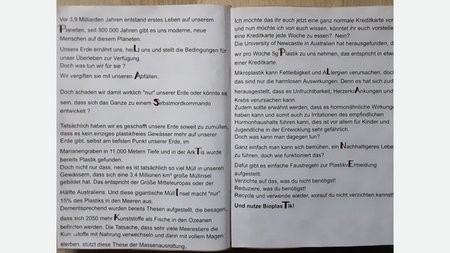 Vor 3,9 Milliarden Jahren entstand erstes Leben auf unserem
Planeten, seit 300.000 Jahren gibt es uns moderne, neue
Menschen auf diesem Planeten.
Unsere Erde ernährt uns, heiLt uns und stellt die Bedingungen für
unser Überleben zur Verfügung.
Doch was tun wir für sie ?
Wir vergiften sie mit unseren Abfällen.
Doch schaden wir damit wirklich "nur" unserer Erde oder könnte es
sein, dass sich das Ganze zu einem Selbstmordkommando
entwickelt ?
Tatsächlich haben wir es geschafft unsere Erde soweit zu zumüllen,
dass es kein einziges plastikfreies Gewässer mehr auf unserer
Erde gibt, selbst am tiefsten Punkt unserer Erde, im
Marianengraben in 11.000 Metern Tiefe und in der ArkTis wurde
bereits Plastik gefunden.
Doch nicht nur das, nein es ist tatsächlich so viel Müll in unseren
Gewässern, dass sich eine 3.4 Millionen km² große Müllinsel
gebildet hat. Das entspricht der Größe Mitteleuropas oder der
Hälfte Australiens. Und diese gigantische Müllinsel macht "nur"
15% des Plastiks in den Meeren aus.
Dementsprechend wurden bereits Thesen aufgestellt, die besagen,
dass sich 2050 mehr Kunststoffe als Fische in den Ozeanen
befinden werden. Die Tatsache, dass sehr viele Meerestiere die
Kunststoffe mit Nahrung verwechseln und dann mit vollem Magen
sterben, stützt diese These der Massenausrottung.
Ich möchte das ihr euch jetzt eine ganz normale Kreditkarte vorstellt
und nun möchte ich von euch wissen, könntet ihr euch vorstellen
eine Kreditkarte jede Woche zu essen? Nein?
Die University of Newcastle in Australien hat herausgefunden, dass
wir pro Woche 5g Plastik zu uns nehmen, das entspricht in etwa
einer Kreditkarte.
Mikroplastik kann Fettleibigkeit und ALlergien verursachen, doch
das sind nur die harmlosen Auswirkungen. Denn es hat sich auch
herausgestellt, dass es Unfruchtbarkeit, HerzerkrAnkungen und
Krebs verursachen kann.
Zudem sollte erwähnt werden, dass es hormonähnliche Wirkungen
haben kann und somit auch zu Irritationen des empfindlichen
Hormonhaushalts führen kann, dies ist vor allem für Kinder und
Jugendliche in der Entwicklung sehr gefährlich.
Doch was kann man dagegen tun?
Ganz einfach man kann sich bemühen, ein Nachhaltigeres Leben
zu führen, doch wie funktioniert das?
Dafür gibt es einfache Faustregeln zur PlastikvErmeidung
aufgestellt:
Verzichte auf das, was du nicht benötigst!
Reduziere, was du benötigst!
Recycle und verwende wieder, worauf du nicht verzichten kannst!
Und nutze BioplasTik!